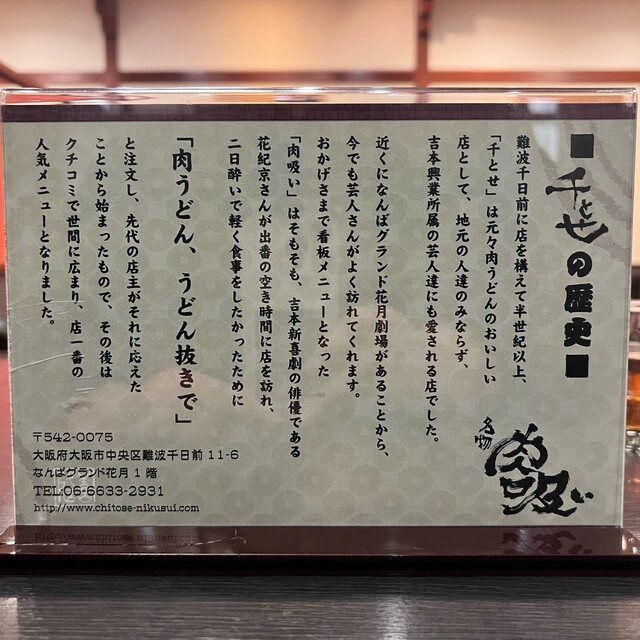 ■千とせの歴史■
難波千日前に店を構えて半世紀以上、
「千とせ」は元々肉うどんのおいしい
店として、地元の人達のみならず、
吉本興業所属の芸人達にも愛される店でした。
近くになんばグランド花月劇場があることから、
今でも芸人さんがよく訪れてくれます。
おかげさまで看板メニューとなった
「肉吸い」はそもそも、吉本新喜劇の俳優である
花紀京さんが出番の空き時間に店を訪れ、
二日酔いで軽く食事をしたかったために
「肉うどん、うどん抜きで」
と注文し、先代の店主がそれに応えた
ことから始まったもので、その後は
クチコミで世間に広まり、店一番の
人気メニューとなりました。
名物
肉吸い
〒542-0075
大阪府大阪市中央区難波千日前 11-6
なんばグランド花月 1 階
TEL06-6633-2931
http://www.chitose-nikusui.com